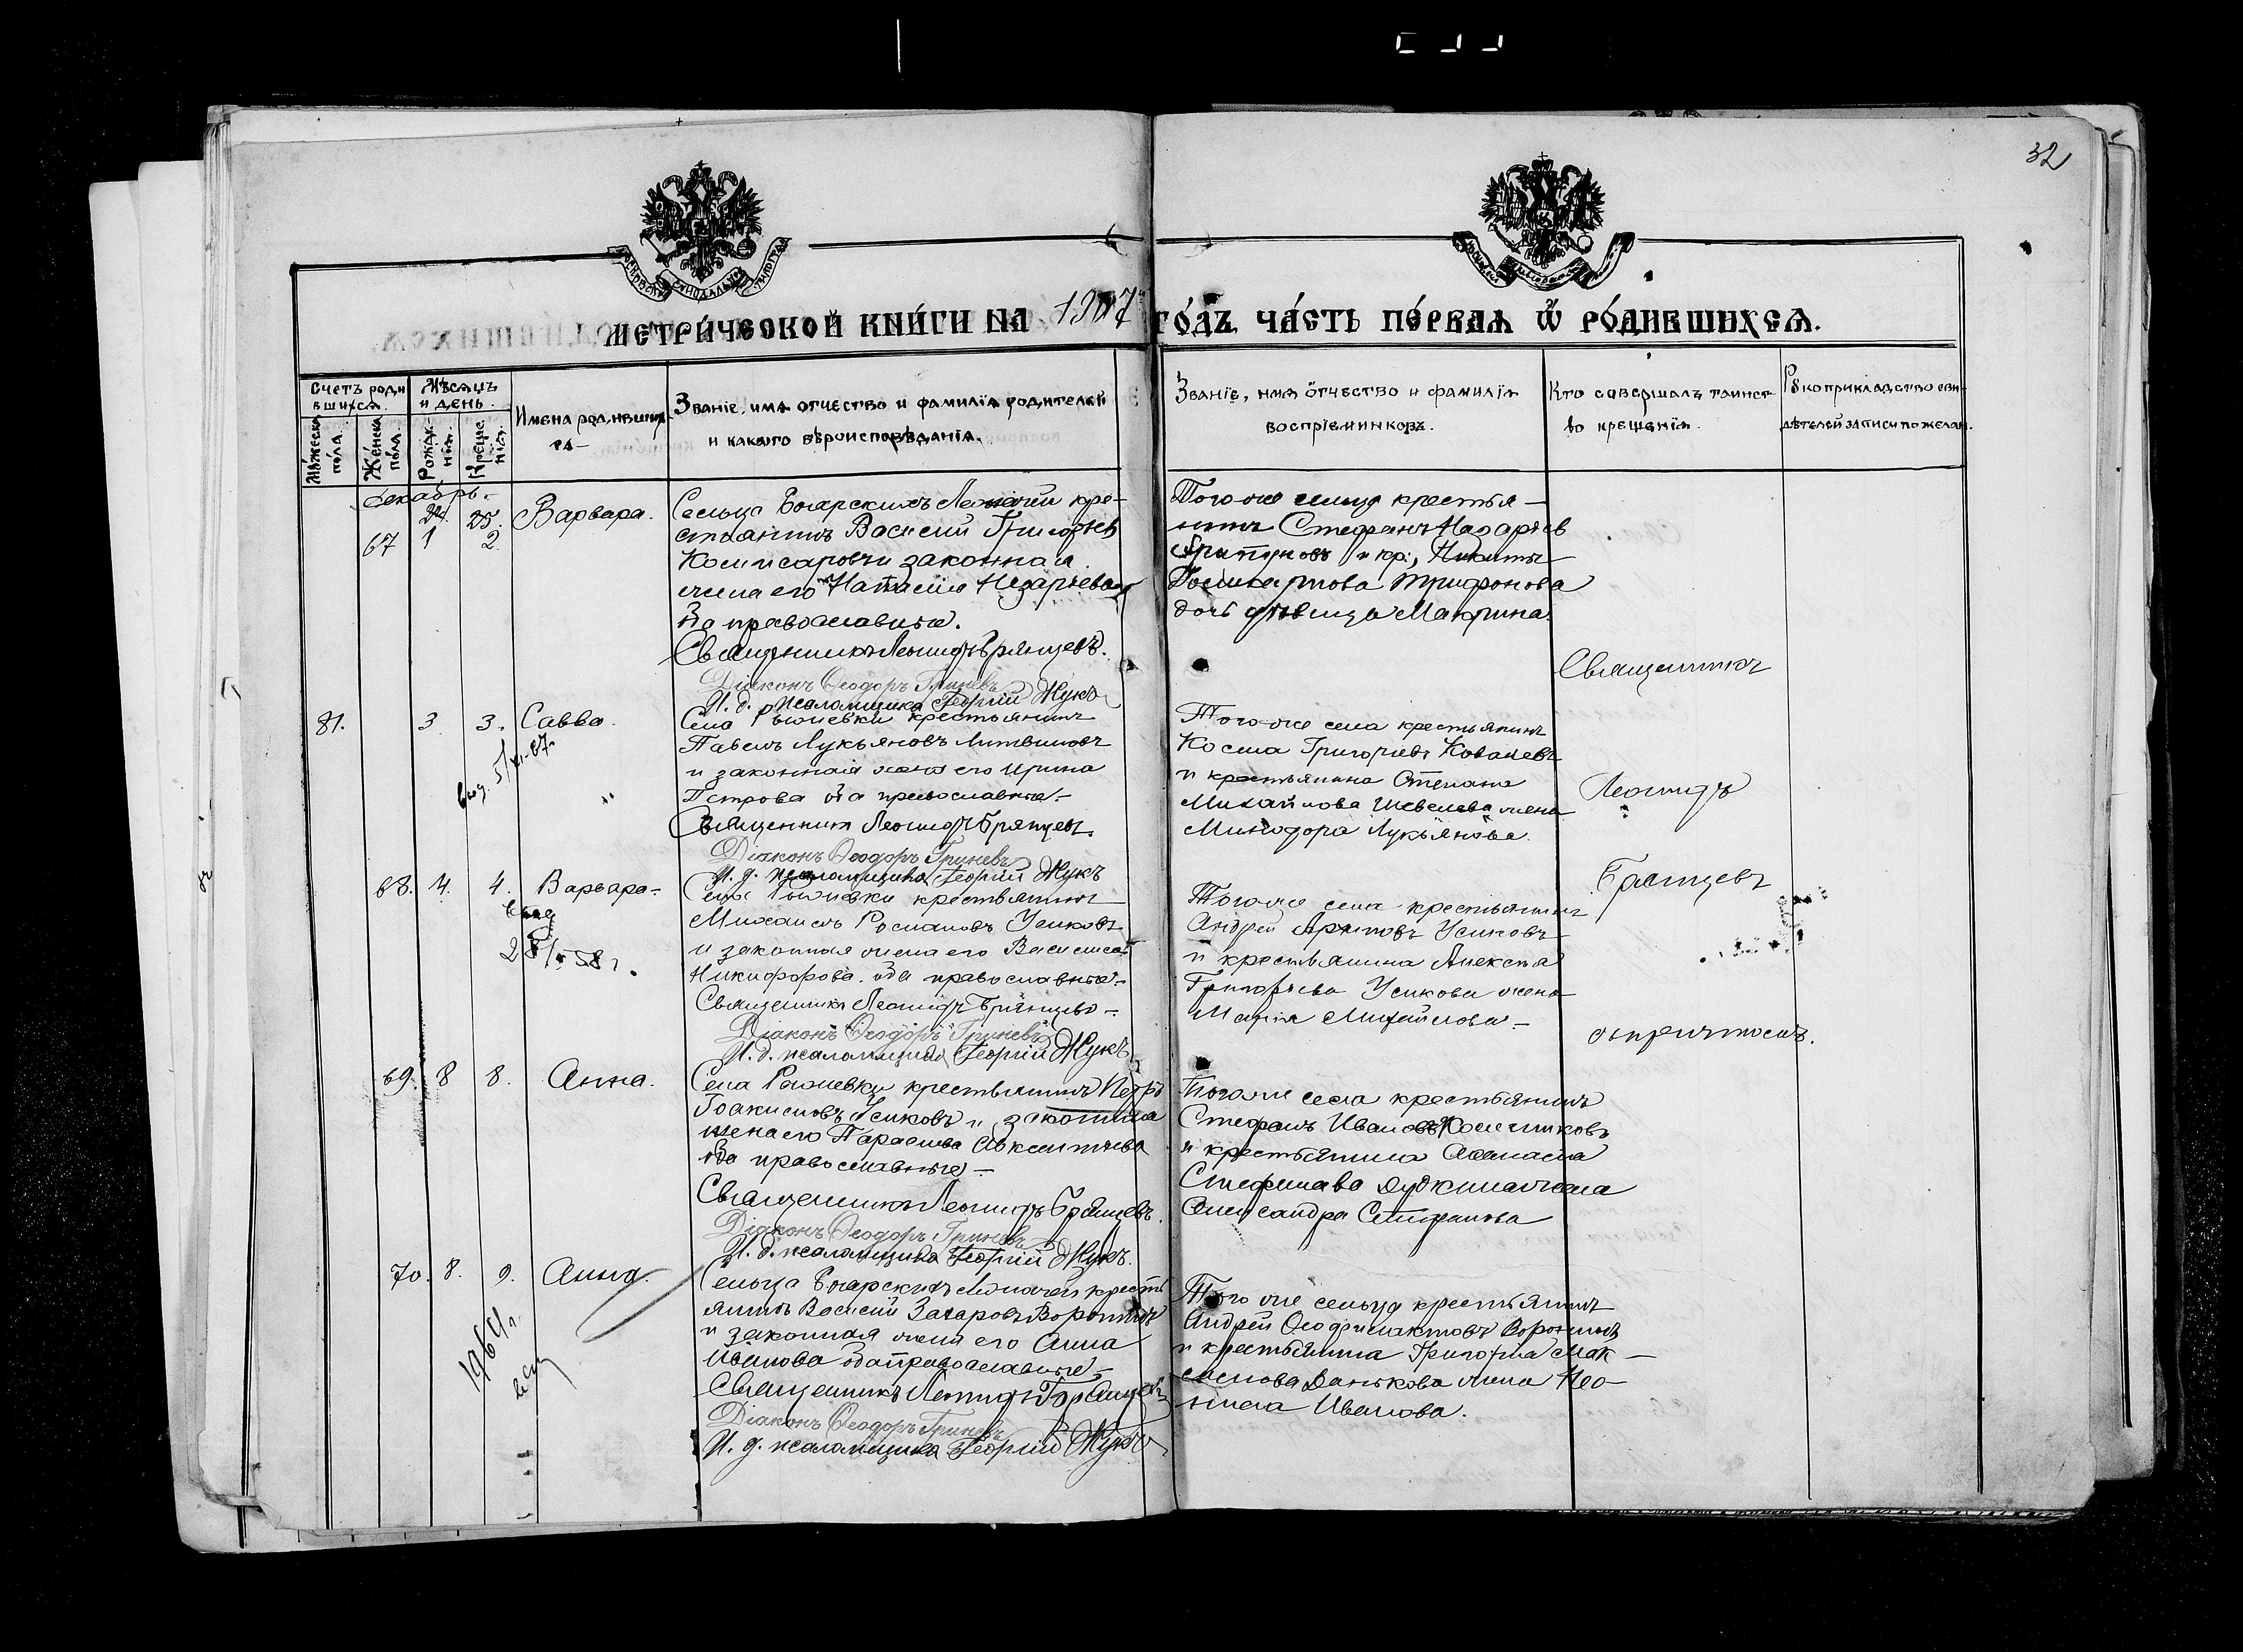 32
МОСКОВСКОЙ СИНОДАЛЬНОЙ ТИПОГРАФІИ
МЕТРИ́ЧЕСКОЙ КНИ́ГИ НА 1907 ГО́ДЪ, ЧА́СТЬ ПЕ́РВАѦ Ѿ РО́ДИВШИХСѦ.
Счетъ родившихсѧ.
Мужеска по́ла.
Же́нска по́ла.
Мѣсѧцъ и день.
Рожденіѧ.
Крещеніѧ.
Имена родившихсѧ
Званіе, имѧ отчество и фамиліѧ родителей
и какого вѣроисповѣданіѧ.
Званіе, имѧ отчество и фамиліѧ
воспріемниковъ.
Кто совершалъ таинст-
во крещеніѧ.
Рукоприкладство сви-
дѣтелей записи по желан.
Декабрь.
25.
67 1 2 Варвара.
Сельца Боярскихъ кре-
стьянинъ Василій Григорьев
Комисаровъ и законная
жена его Назарьева
оба православные.
Священникъ Леонидъ Брянцевъ.
Діаконъ Ѳеодоръ Гриневъ
И. д. псаломщика Георгій Жукъ
Того же сельца крестья-
нинъ Стефанъ Назарьев
и кр., Никиты
Трифонова
дочь дѣвица Макрина.
81. 3 3. Савва.
Села крестьянинъ
Павелъ Лукьяновъ Литвиновъ
и законная жена его Ирина
Петрова оба православные.
Священникъ Леонидъ Брянцевъ.
Діаконъ Ѳеодоръ Гриневъ
И. д. псаломщика Георгій Жукъ
Того-же села крестьянинъ
Косма Григорьевъ Ковалевъ
и крестьянина Степана
Михайлова Шевелева жена
Минодора Лукьянова.
68. 4. 4. Варвара.
Села крестьянинъ
Михаилъ Романовъ Усиковъ
и законная жена его Василиса
Никифорова. оба православные.
Священникъ Леонидъ Брянцевъ
Діаконъ Ѳеодоръ Гриневъ
И. д. псаломщика Георгій Жукъ
Того же села крестьянинъ
Андрей Усиковъ
и крестьянина Алексѣя
Григорьева Усикова жена
Марія Михайлова
69. 8 8. Анна.
Села крестьянинъ Петръ
Іоакимовъ Усиковъ и законная
жена его Параскева Авксентьева
оба православные
Священникъ Леонидъ Брянцевъ.
Діаконъ Ѳеодоръ Гриневъ
И. д. псаломщика Георгій Жукъ.
Того же села крестьянинъ
Стефанъ Ивановъ
и крестьянина Аѳанасія
жена
Александра Стефанова
70. 8. 9. Анна.
1964 г.
Сельца Боярскихъ кресть
янинъ Василій Захаровъ Воронинъ
и законная жена его Анна
Иванова оба православные
Священникъ Леонидъ Брянцевъ
Діаконъ Ѳеодоръ Гриневъ
И. д. псаломщика Георгій Жукъ
Того же сельца крестьянинъ
Андрей Воронинъ
и крестьянина Григорія Мак-
симова Данькова жена Нео-
нила Иванова.
Священникъ
Леонидъ
Брянцевъ
съ причтомъ.